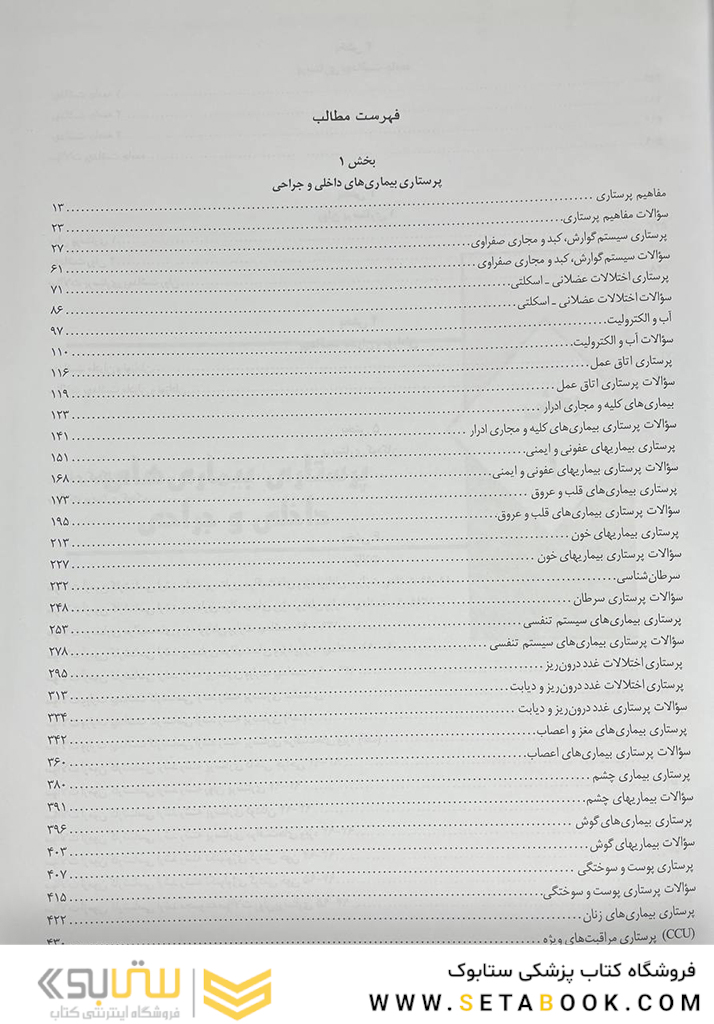 فهرست مطالب
بخش ۱
پرستاری بیماری‌های داخلی و جراحی
مفاهیم پرستاری ........ ۱۳
سؤالات مفاهیم پرستاری ........ ۲۳
پرستاری سیستم گوارش، کبد و مجاری صفراوی ........ ۲۷
سؤالات سیستم گوارش، کبد و مجاری صفراوی ........ ۶۱
پرستاری اختلالات عضلانی ـ اسکلتی ........ ۷۱
سؤالات اختلالات عضلانی ـ اسکلتی ........ ۸۶
آب و الکترولیت ........ ۹۷
سؤالات آب و الکترولیت ........ ۱۱۰
پرستاری اتاق عمل ........ ۱۱۶
سؤالات پرستاری اتاق عمل ........ ۱۱۹
بیماری‌های کلیه و مجاری ادرار ........ ۱۲۳
سؤالات پرستاری بیماری‌های کلیه و مجاری ادرار ........ ۱۴۱
پرستاری بیماریهای عفونی و ایمنی ........ ۱۵۱
سؤالات پرستاری بیماریهای عفونی و ایمنی ........ ۱۶۸
پرستاری بیماری‌های قلب و عروق ........ ۱۷۳
سؤالات پرستاری بیماری‌های قلب و عروق ........ ۱۹۵
پرستاری بیماریهای خون ........ ۲۱۳
سؤالات پرستاری بیماریهای خون ........ ۲۲۷
سرطان‌شناسی ........ ۲۳۲
سؤالات پرستاری سرطان ........ ۲۴۸
پرستاری بیماری‌های سیستم تنفسی ........ ۲۵۳
سؤالات پرستاری بیماری‌های سیستم تنفسی ........ ۲۷۸
پرستاری اختلالات غدد درون‌ریز ........ ۲۹۵
پرستاری اختلالات غدد درون‌ریز و دیابت ........ ۳۱۳
سؤالات پرستاری غدد درون‌ریز و دیابت ........ ۳۳۴
پرستاری بیماری‌های مغز و اعصاب ........ ۳۴۲
سؤالات پرستاری بیماری‌های اعصاب ........ ۳۶۰
پرستاری بیماری چشم ........ ۳۸۰
سؤالات بیماریهای چشم ........ ۳۹۱
پرستاری بیماری‌های گوش ........ ۳۹۶
سؤالات بیماریهای گوش ........ ۴۰۳
پرستاری پوست و سوختگی ........ ۴۰۷
سؤالات پرستاری پوست و سوختگی ........ ۴۱۵
پرستاری بیماری‌های زنان ........ ۴۲۲
(CCU) پرستاری مراقبت‌های ویژه ........ ۴۳۰
فروشگاه کتاب پزشکی ستابوک
WWW.SETABOOK.COM
ستابوک
فروشگاه اینترنتی کتاب